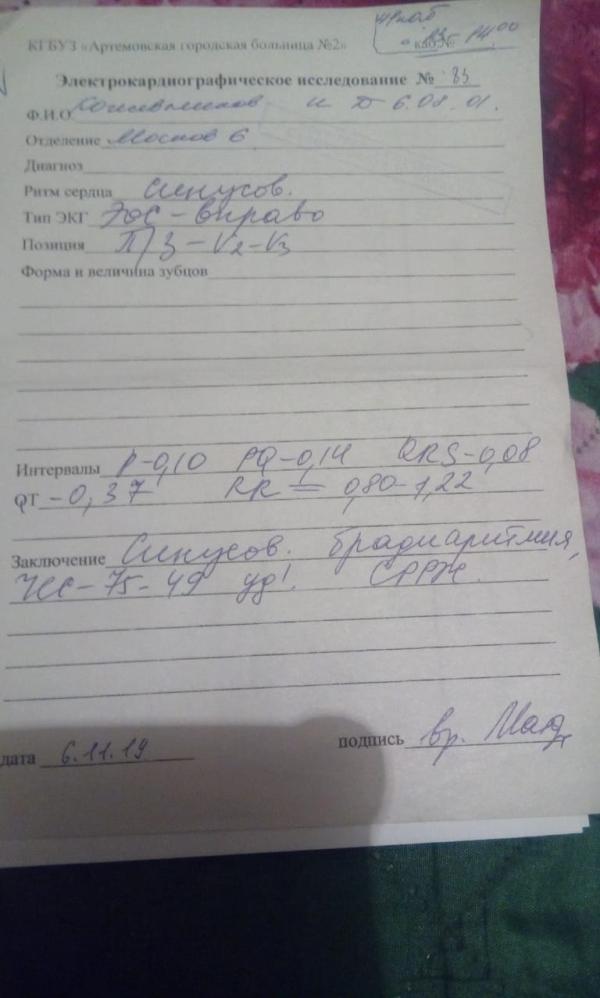 КГБУЗ «Артемовская городская больница №2»
каб №
14.00
Электрокардиографическое исследование № 83
Ф.И.О. И Д 6.08.01.
Отделение
Диагноз
Ритм сердца Синусов.
Тип ЭКГ ЭОС - вправо
Позиция П/З - V2-V3
Форма и величина зубцов
Интервалы P-0,10 PQ-0,14 QRS-0,08
QT - 0,37 RR = 0,80-1,22
Заключение Синусов. брадиаритмия,
ЧСС-75-49 уд'. СРРЖ.
подпись вр.
дата 6.11.19